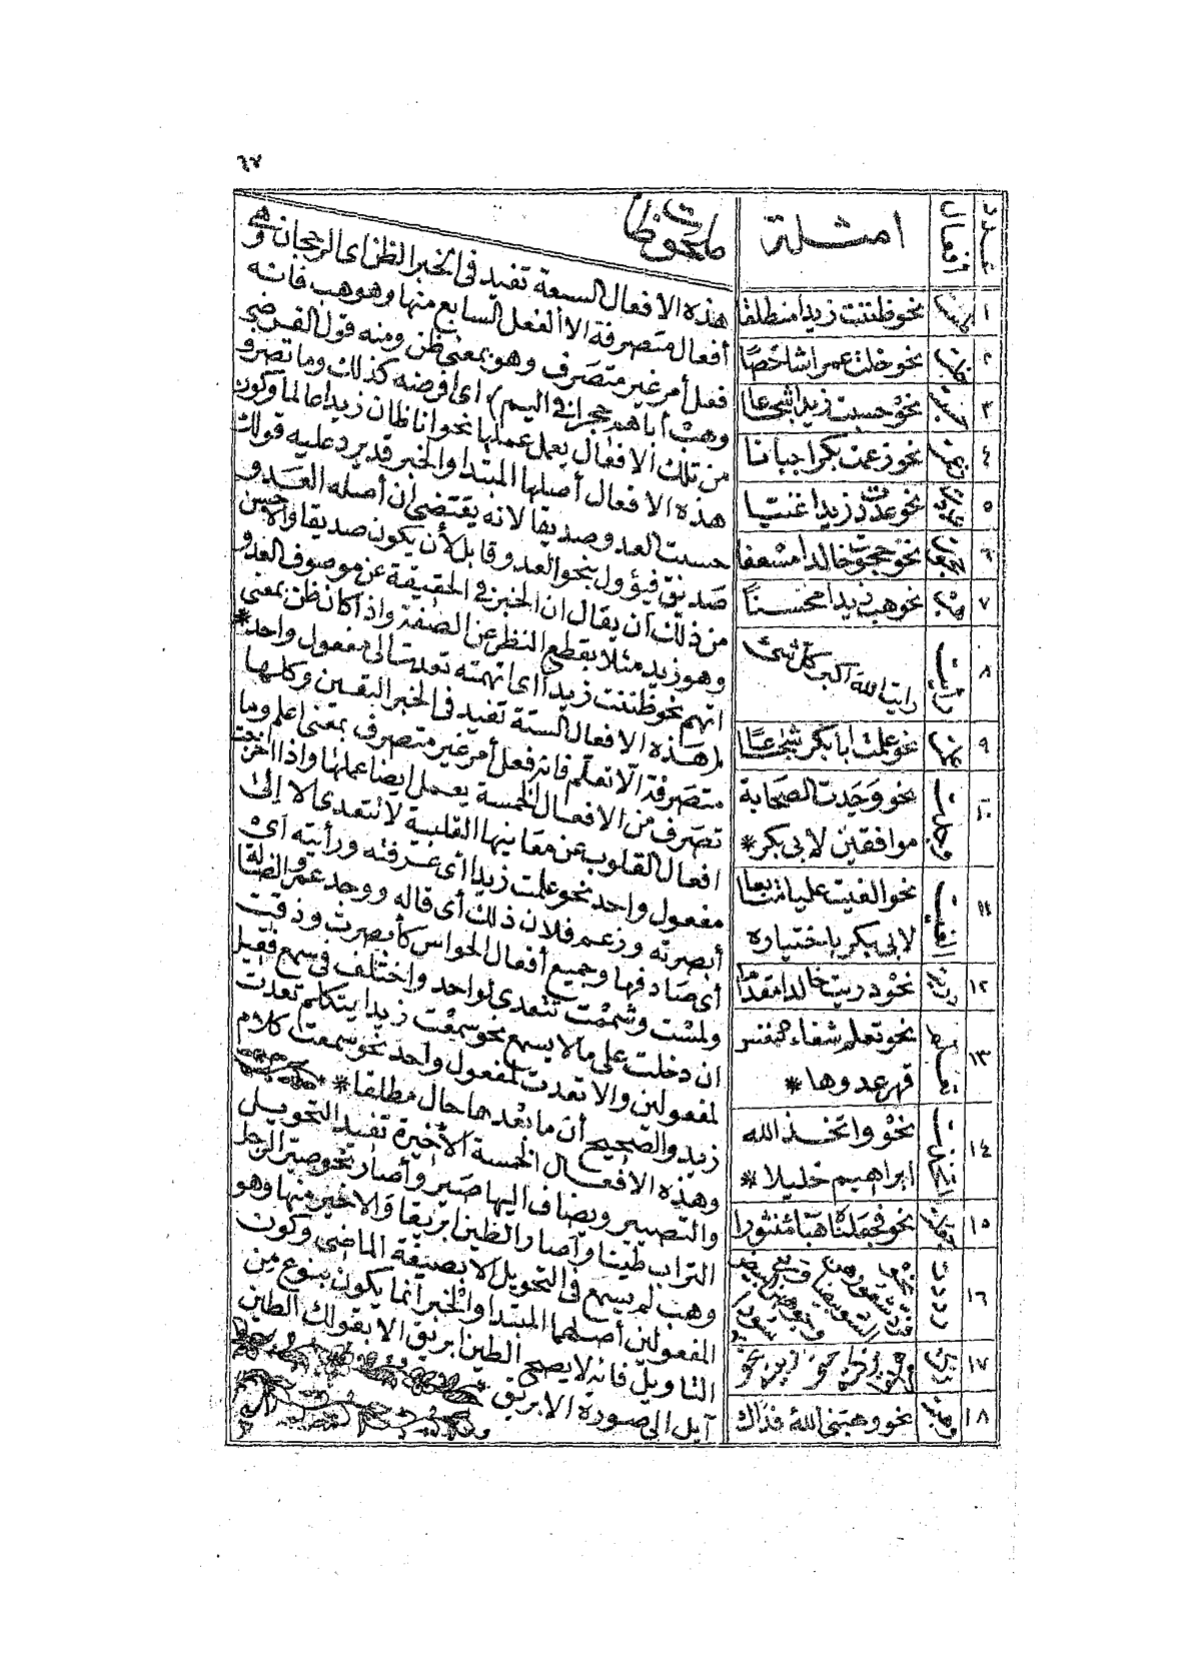 ٦٧
عدد
أفعال
امثلة
ملحوظات
١ ظننت نحو ظننت زيدا منطلقا
٢ خلت نحو خلت عمرا شاخصًا
٣ حسبت نحو حسبت زيدا شجاعا
٤ زعمت نحو زعمت بكرا جبانا
٥ عددت نحو عددت زيدا غنيا
٦ حجوت نحو حجوت خالدا مسعفا
٧ هب نحو هب زيدا محسنًا
٨ رأيت رايت الله اكبر كل شئ
٩ علمت نحو علمت أبا بكر شجاعًا
١٠ وجدت نحو وَجَدت الصحابة
موافقين لأبى بكر *
١١ الفيت نحو الفيت عليا متابعا
لابى بكر باختياره
١٢ دريت نحو دريت خالدا مقداما
١٣ تعلم نحو تعلم شفاء النفس
قهر عدوها *
١٤ اتخذت نحو واتخذ الله
ابراهيم خليلا *
١٥ جعلت نحو فجعلناه هباء منثورا
١٦ رددت نحو
فرد شعورهن
١٧
١٨ وهبت نحو وهبنى الله فذاك
هذه الافعال السبعة تفيد فى الخبر الظن اى الرجحان وهى
أفعال متصرفة الا الفعل السابع منها وهو هب فانه
فعل أمر غير متصَرف وهو بمعنى ظن ومنه قول الفرضى
وهبْ أباهم حجرا فى اليم) اى افرضه كذلك وما تصرف
من تلك الافعال يعمل عملها نحو انا ظان زيدا عالما وكون
هذه الافعال أصلها المبتدا والخبر قد يرد عليه قولك
حسبت العدو صديقا لانه يقتضى ان أصله العدو
صديق فيؤول بنحو العدو قابل لأن يكون صديقا والاحسن
من ذلك أن يقال ان الخبر فى الحقيقة عن موصوف العدو
وهو زيد مثلا بقطع النظر عن الصفة واذا كان ظن بمعنى
اتهم نحو ظننت زيدا اى اتهمته تعدت الى مفعول واحد *
(هذه الافعال الستة تفيد فى الخبر اليقين وكلها
متصرفة الا تعلم فانه فعل أمر غير متصرف بمعنى اعلم وما
تصرف من الافعال الخمسة يعمل ايضا عملها واذا اخرجت
افعال القلوب عن معانيها القلبية لا تتعدى الا إلى
مفعول واحد نحو علمت زيدا أى عرفته ورأيته أى
أبصرته وزعم فلان ذلك أى قاله ووجد عمرو الضالة
أى صادفها وجميع أفعال الحواس كأبصرت وذقت
ولمست وشممت تتعدى لواحد واختلف فى سمع فقيل
ان دخلت على مالا يسمع نحو سمعت زيدا يتكلم تعدت
لمفعولين والا تعدت لمفعول واحد نحو سمعت كلام
زيد والصحيح أن ما بعدها حال مطلقا *
وهذه الافعال الخمسة الأخيرة تفيد التحويل
والتصيير ويضاف اليها صير وأصار نحو صير الرجل
التراب طينا وأصار الطين ابريقا والاخير منها وهو
وهب لم يسمع فى التحويل الا بصيغة الماضى وكون
المفعولين أصلهما المبتدا والخبر انما يكون بنوع من
التاويل فانه لا يصح الطين ابريق الا بقولك الطين
آيل الى صورة الابريق